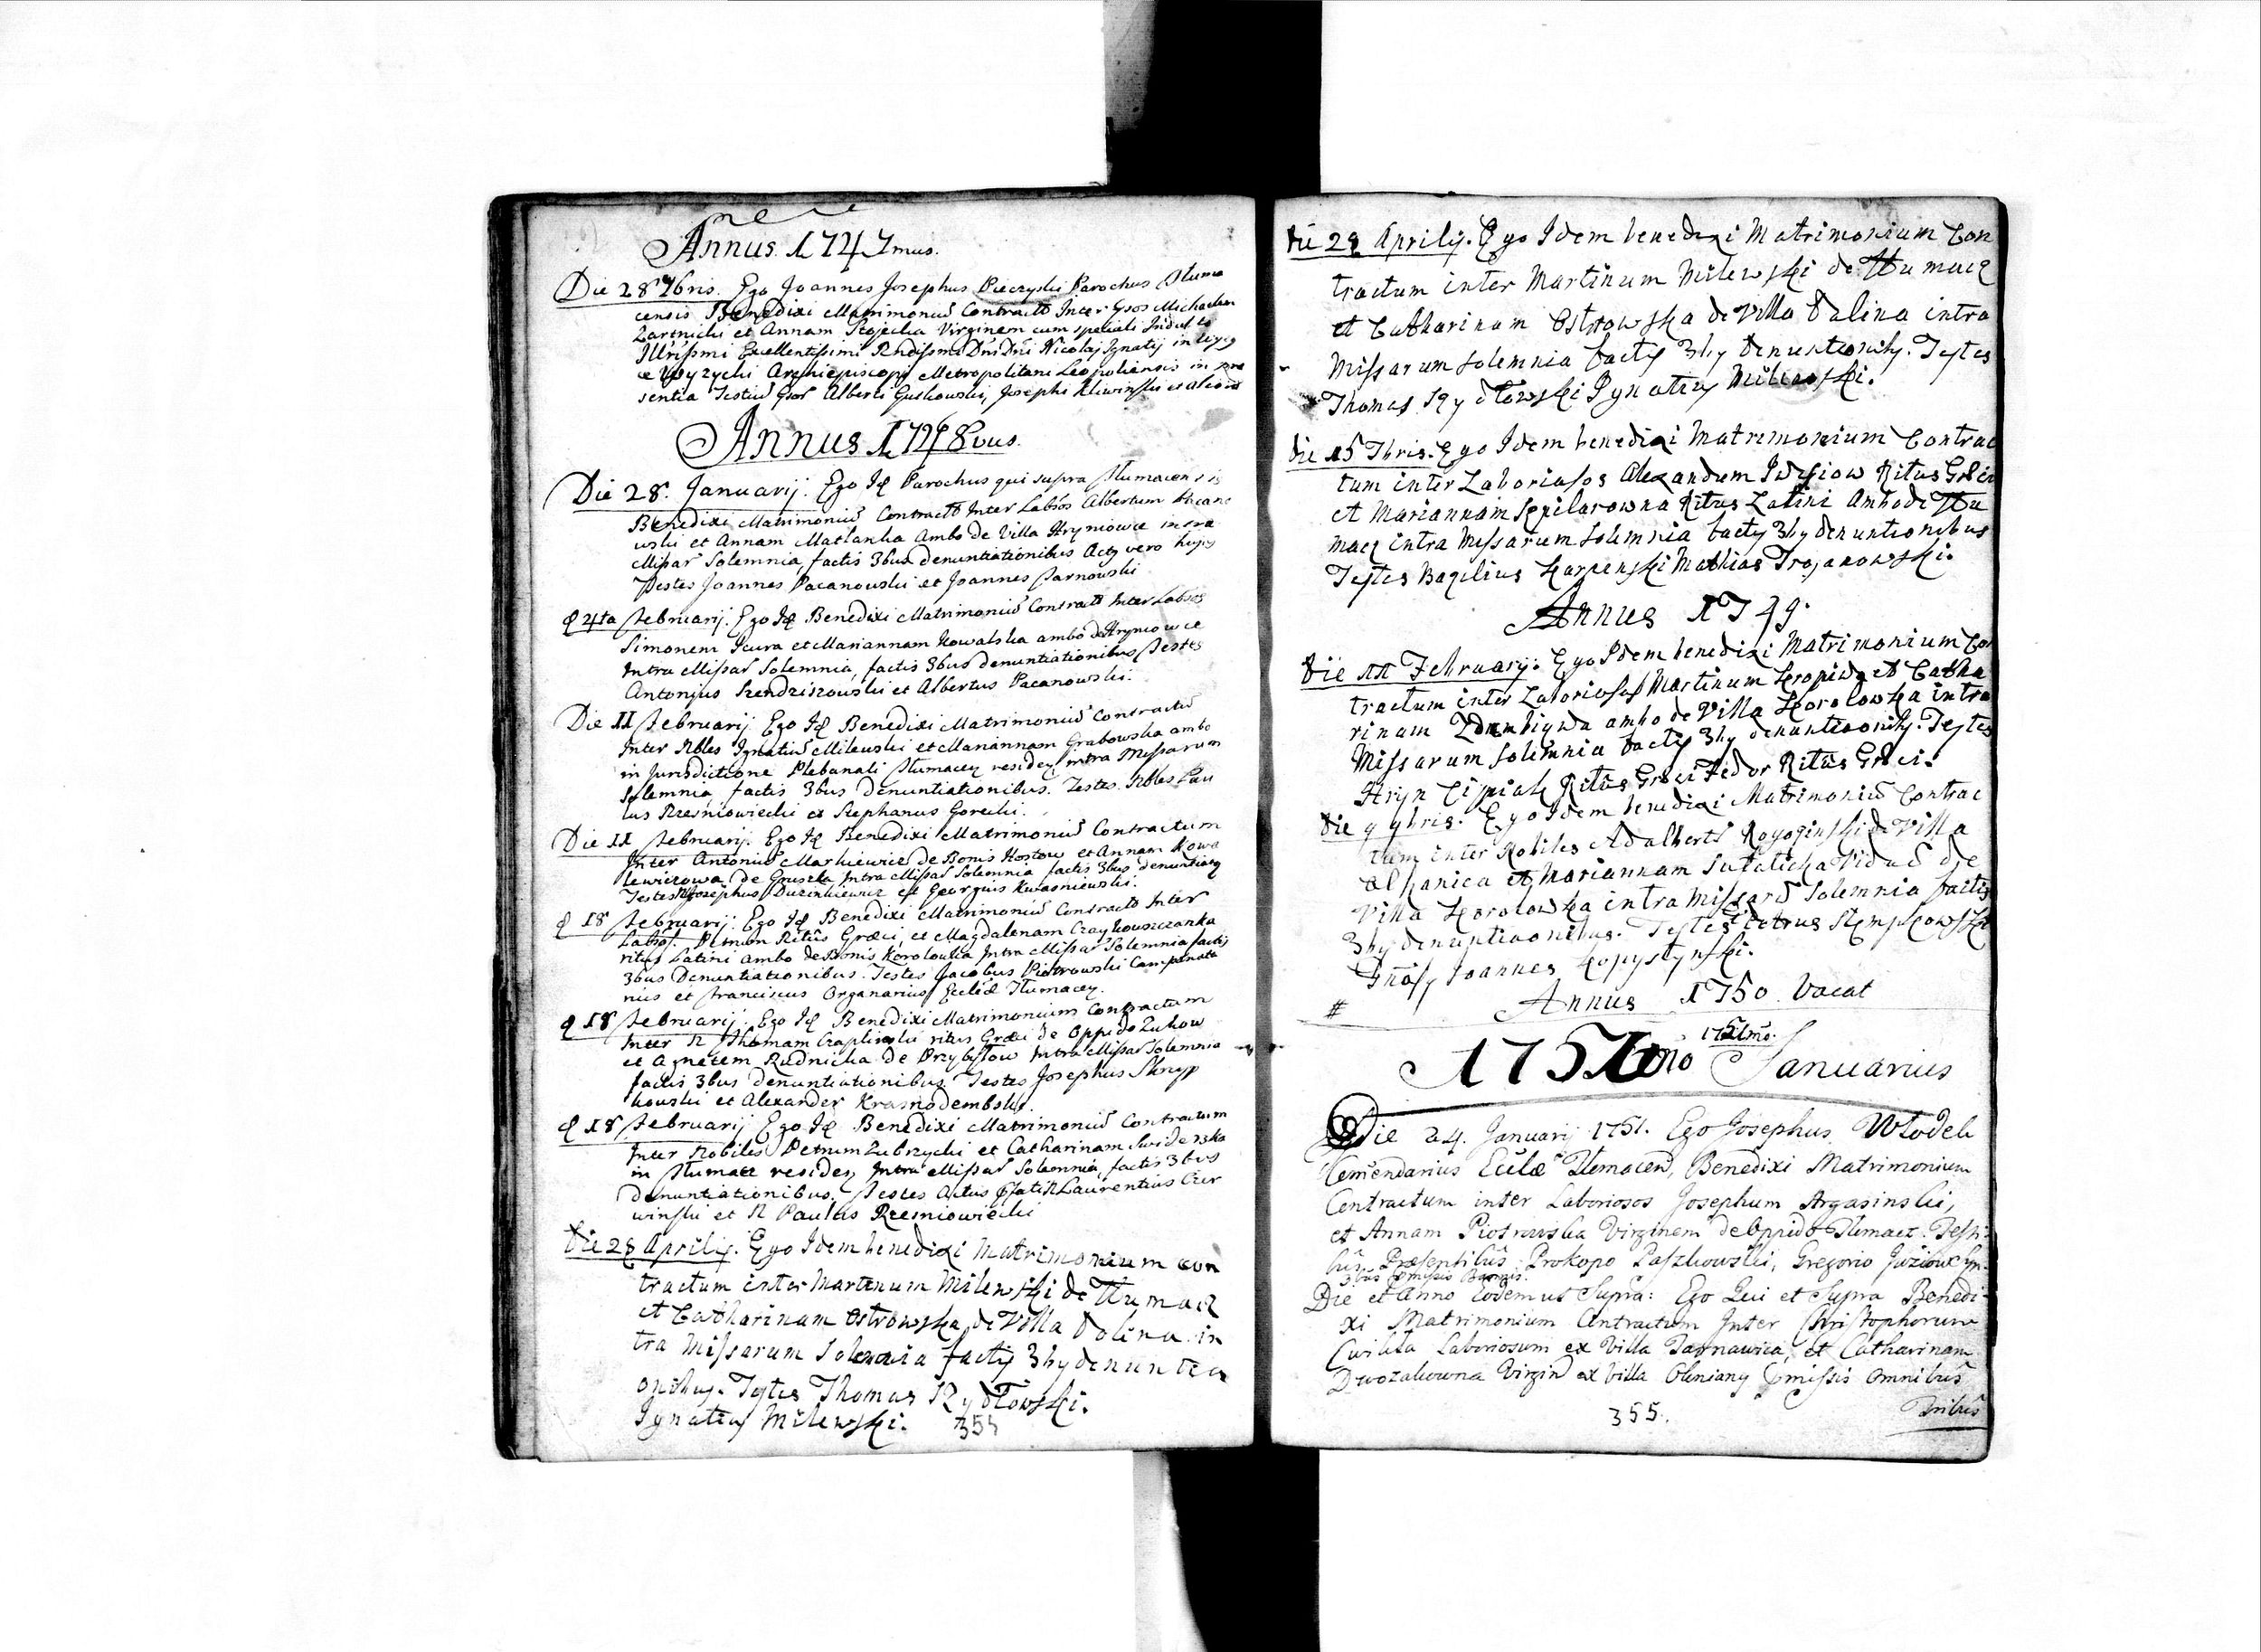 Annus. 1747mus.
Die 28 7bris. Ego Joannes Josephus Pieczyski Parochus Tłuma
censis Benedixi Matrimoniũ Contractũ Inter Gsos Michaelem
Zartnicki et Annam Virginem cum speciali Indulto
Illrissmi Excellentissimi Rndissmi Dni Dni Nicolaj Ignatij in
Wyzycki Archiepiscopi Metropolitani Leopoliensis in prae
sentia Testiũ Gsor Alberti Gutkowski, Josephi Kliwinski et alior
Annus 1748vus.
Die 28. Januarij. Ego Id Parochus qui supra Tłumacensis
Benedixi Matrimoniũ Contractũ Inter Labsos Albertum Pacano
wski et Annam Matlanka Ambo de Villa Hryniowce intra
Missar Solemnia, factis 3bus denuntiationibus Actg vero hujus
Testes Joannes Pacanowski et Joannes Tarnowski
d 4ta Februarij. Ego Id Benedixi Matrimoniũ Contractũ Inter Labsos
Simonem Icura et Mariannam Kowalska ambo de Hryniowce
Intra Missar Solemnia, factis 3bus denuntiationibus Testes
Antonius Szendziszowski et Albertus Pacanowski.
Die 11 Februarij Ego Id Benedixi Matrimoniũ Contractũ
Inter Nbles Ignatiũ Milewski et Mariannam Grabowska ambo
in Jurisdictione Plebanali Tłumacz residez intra Missarum
Solemnia factis 3bus denuntiationibus. Testes. Nbles Pau
lus Rzesniowiecki et Stephanus Gorecki.
Die 11 Februarij. Ego Id Benedixi Matrimoniũ Contractum
Inter Antoniũ Markiewicz de Bonis Hostow et Annam Kowa
lewiczowa de Gruszka Intra Missar Solemnia factis 3bus denuntiatg
Testes Josephus Duzinkiewicz et Georgius Kwasniewski.
d 18 Februarij. Ego Id Benedixi Matrimoniũ Contractũ Inter
Labsos. Petrum Ritûs Græci, et Magdalenam Czaykowszczanka
ritus Latini ambo de Bonis Korolowka Intra Missar Solemnia factis
3bus Denuntiationibus. Testes Jacobus Piotrowski Campanata
rius et Franciscus Organarius Ecclæ Tłumacz.
d 18 Februarij. Ego Id Benedixi Matrimonium Contractum
Inter N Thomam Czaplinski ritus Græci de Oppido Zukow
et Agnetem Rudnicka de Przybyłow Intra Missar Solemnia
factis 3bus denuntiationibus. Testes Josephus Skryp
kowski et Alexander Krasnodembski.
d 18 Februarij Ego Id Benedixi Matrimoniũ Contractum
Inter Nobiles Petrum Zubrzycki et Catharinam Swiderska
in Tłumacz residez Intra Missar Solemnia, factis 3bus
denuntiationibus. Testes Actus Laurentius Czer
winski et N Paulus Rzesniowiecki
Die 28 Aprilis. Ego Idem benedixi Matrimonium con
tractum inter Martinum Milewski de Tłumacz
et Catharinam Ostrowska de Villa Dolina in
tra Missarum Solemnia factis 3bg denuntia
onibus. Testes Thomas Szydłowski.
Ignatius Milewski.
Die 28 Aprilis. Ego Idem benedixi Matrimonium Con
tractum inter Martinum Milewski de Tłumacz
et Catharinam Ostrowska de Villa Dalina intra
Missarum solemnia factis 3bg denuntionibg. Testes
Thomas Szydłowski Ignatius Milewski.
Die 15 7bris. Ego Idem benedixi Matremonium Contrac
tum inter Laboriosos Alexandum Iwsiow Ritus Græci
et Mariannam Spilarowna Ritus Latini Ambo de Tłu
macz intra Missarum solemnia factis 3bg denuntionibus
Testes Bazilius Karpenski Mathias Trojanowski.
Annus 1749.
Die 11 February. Ego Idem benedixi Matrimonium Con
tractum inter Laboriosos Martinum Kropiwa et Catha
rinam ambo de Villa Korolowka intra
Missarum Solemnia factis 3bg denuntiaonibg. Testes
Hryn Cipiak Ritus Græci Fedor Ritûs Græci.
Die 9 9bris. Ego Idem benedixi Matrimoniũ Contrac
tum inter Nobiles Adalbertũ Rogozinski de Villa
Olhanica et Mariannam Viduã de
Villa Korolowka intra Missarũ Solemnia factis
3bg denuntiaonibus. Testes Petrus Stempkowski
Gnosus Joannes Kopystynski.
# Annus 1750. Vacat
1751mo 1751mo. Januarius
Die 24. Januarij 1751. Ego Josephus Włodek
Comendarius Ecclæ Tłumacen, Benedixi Matrimonium
Contractum inter Laboriosos Josephum Argasinski,
et Annam Piotrowska Virginem de Oppido Tłumacz. Testi
bus Præsentibus Prokopo Paszkowski, Gregorio
3bus Omissis Bannis.
Die et Anno eodem ut Supra: Ego Qui et Supra Benedi
xi Matrimonium Contractum Inter Christophorum
Cwikła Laboriosum ex Villa Tarnawica, et Catharinam
Dwozakowna Virginẽ ex Villa Oleniany Omissis Omnibus
355. Tribus